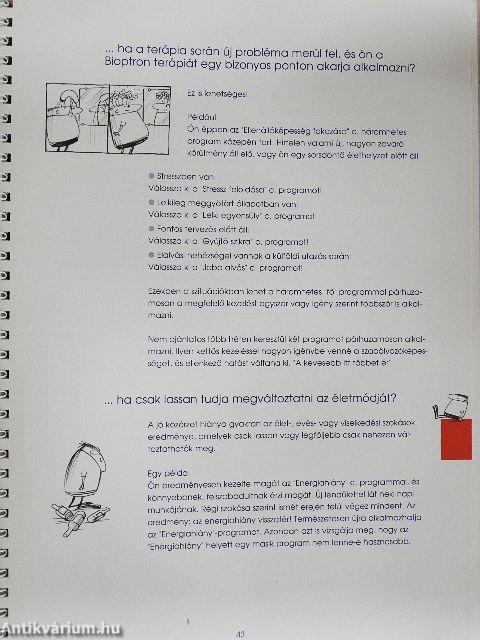 ... ha a terápia során új probléma merül fel, és ön a
Bioptron terápiát egy bizonyos ponton akarja alkalmazni?
Ez is lehetséges!
Például:
Ön éppen az "Ellenállóképesség fokozása" c. háromhetes
program közepén tart. Hirtelen valami új, nagyon zavaró
körülmény áll elő, vagy ön egy sorsdöntő élethelyzet előtt áll.
Stresszben van:
Válassza ki a "Stressz feloldása" c. programot!
Lelkileg meggyötört állapotban van:
Válassza ki a "Lelki egyensúly" c. programot
Fontos tervezés előtt áll:
Válassza ki a "Gyújtó szikra" c. programot!
Elalvás nehézségei vannak a külföldi utazás során:
Válassza ki a "Jobb alvás" c. programot!
Ezekben a szituációkban lehet a háromhetes fő programmal párhuza-
mosan a megfelelő kezelést egyszer vagy igény szerint többször is alkal-
mazni.
Nem ajánlatos több héten keresztül két programot párhuzamosan alkal-
mazni. Ilyen kettős kezeléssel nagyon igénybe venné a szabályozóképes-
séget, és ellenkező hatást váltana ki. "A kevesebb itt többet ér"
... ha csak lassan tudja megváltoztatni az életmódját?
A jó közérzet hiánya gyakran az élet-, evés- vagy viselkedési szokások
eredménye, amelyek csak lassan vagy legfőljebb csak nehezen vál-
toztathatók meg.
Egy példa:
Ön eredményesen kezelte magát az "Energiahiány" c. programmal, és
könnyebbnek, felszabadultnak érzi magát. Új lendülettel lát neki napi
munkájának. Régi szokása szerint ismét erején felül végez mindent. Az
eredmény: az energiahiány visszatér! Természetesen újra alkalmazhatja
az "Energiahiány"-programot. Azonban azt is vizsgálja meg, hogy az
"Energiahiány" helyett egy másik program nem lenne-e hasznosabb.
43
Antikvárium.hu